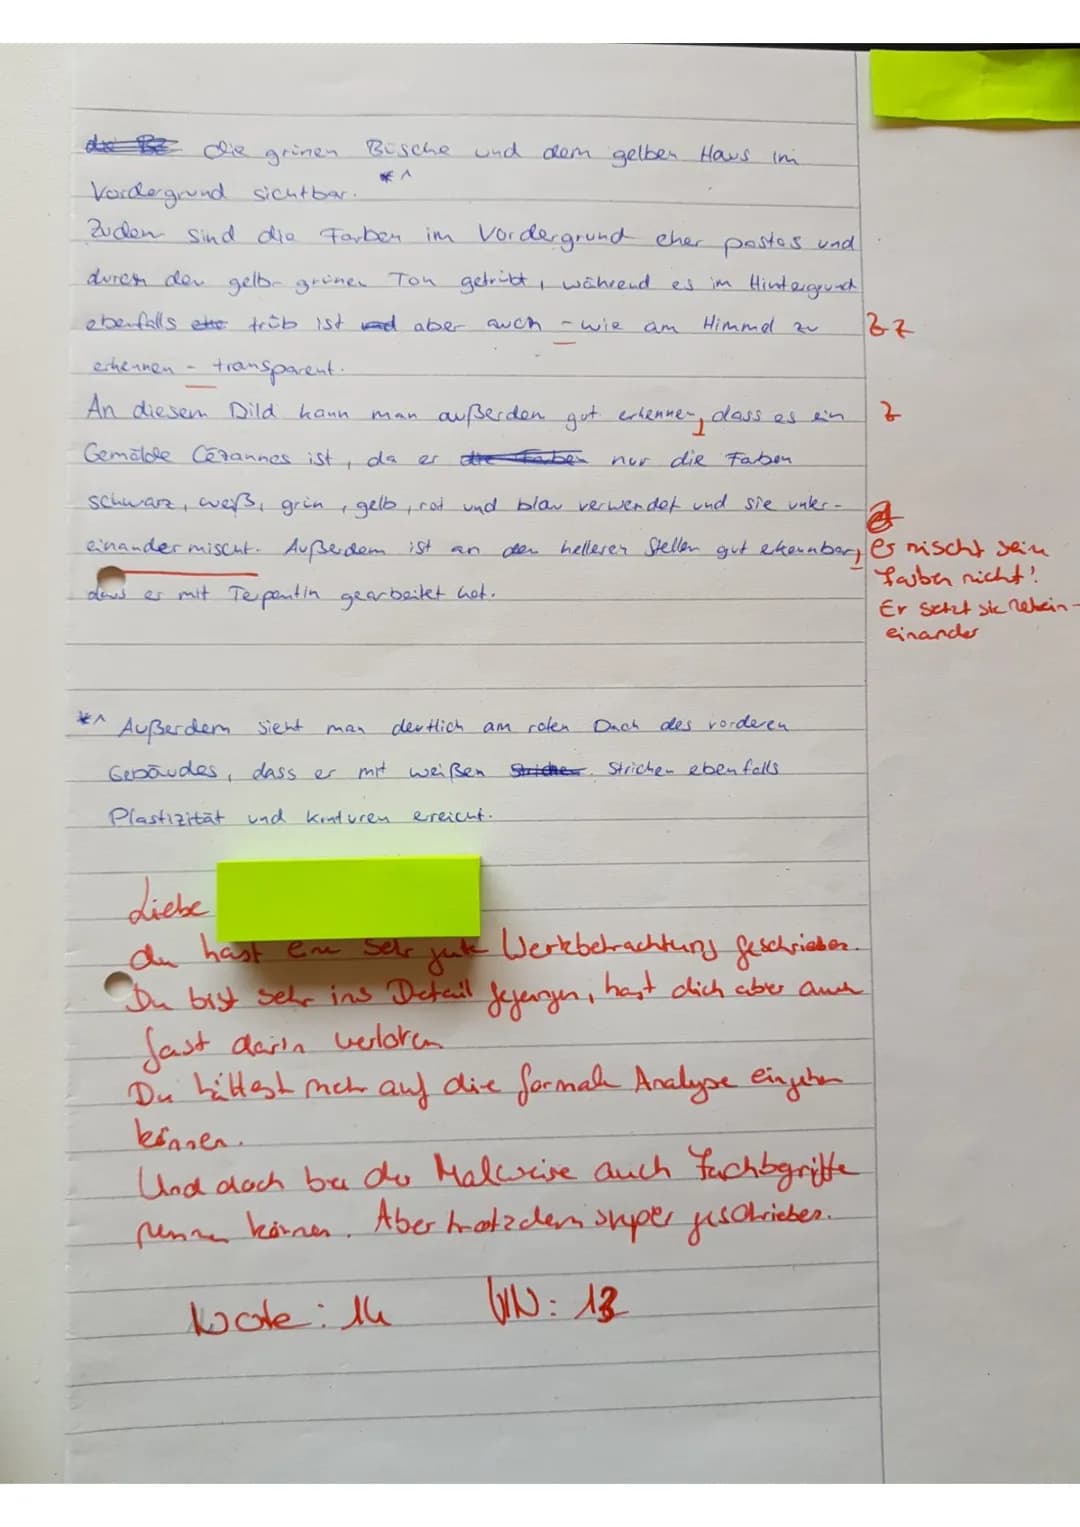 die grünen Büsche und dem gelben Haus im
Vordergrund sichtbar. *^
Zudem sind die Farben im Vordergrund eher pastos und
durch den gelb-grünen Ton getrübt, während es im Hintergrund
ebenfalls trüb ist aber auch - wie am Himmel zu Z Z
erkennen - transparent.
An diesem Bild kann man außerdem gut erkennen, dass es ein Z
Gemälde Cézannes ist, da er nur die Farben
schwarz, weiß, grün, gelb, rot und blau verwendet und sie unter-
einander mischt. Außerdem ist an den helleren Stellen gut erkennbar, es mischt sein
Farben nicht!
dass er mit Terpentin gearbeitet hat.
Er setzt sie neben-
einander
*^ Außerdem sieht man deutlich am roten Dach des vorderen
Gebäudes, dass er mit weißen Strichen ebenfalls
Plastizität und Konturen erreicht.
Liebe
du hast eine sehr gute Werkbetrachtung geschrieben.
Du bist sehr ins Detail gegangen, hast dich aber auch
fast darin verloren
Du hättest mehr auf die formale Analyse eingehen
können.
Und doch bei der Malweise auch Fachbegriffe
nennen können. Aber trotzdem super geschrieben.
Note: 14 VN: 13